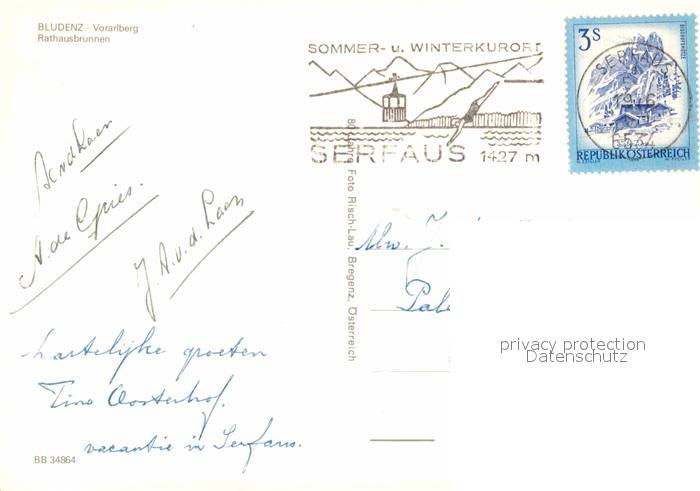 BLUDENZ - Vorarlberg
Rathausbrunnen
SOMMER- u. WINTERKURORT
SERFAUS 1427 m
3S
SERFAUS
1976
6534
REPUBLIK ÖSTERREICH
A. de Gries.
J. A. v. d. Laan
hartelijke groeten
Tino Oosterhof.
vacantie in Serfaus.
BB 34864
Foto Risch-Lau, Bregenz, Österreich
Mw. J.
privacy protection
Datenschutz